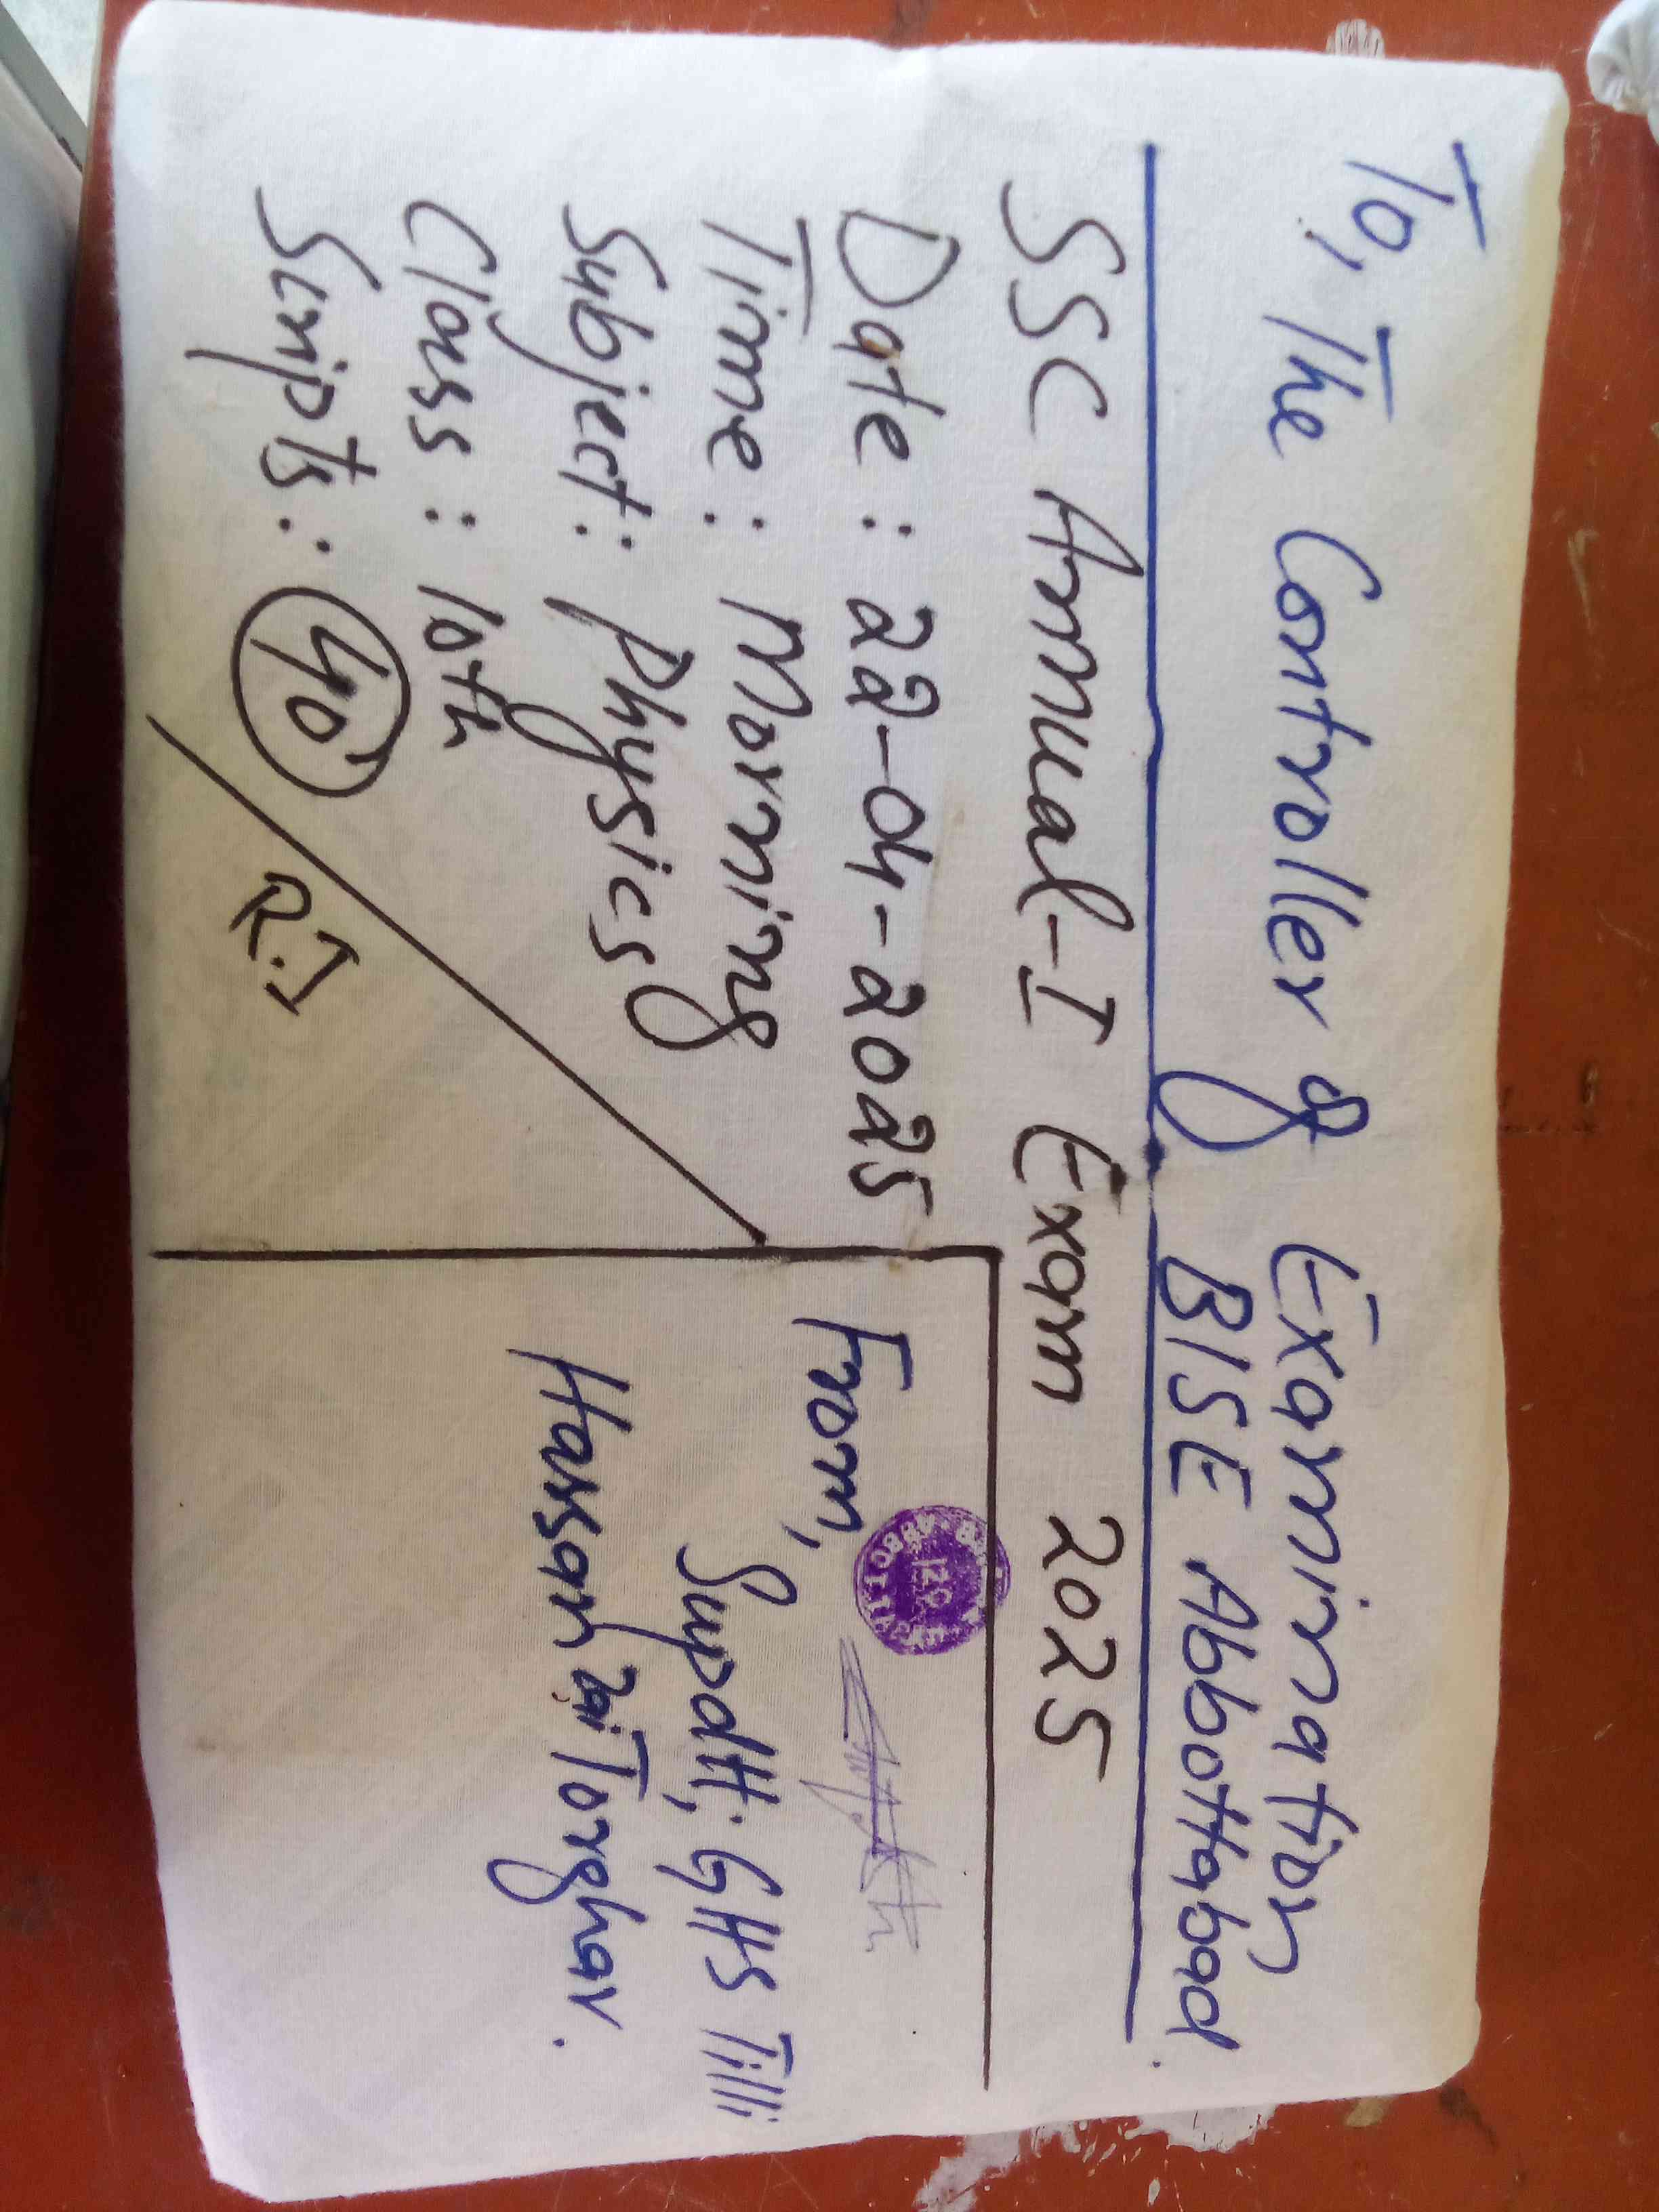 To, The Controller of Examination
BISE Abbottabad.
SSC Annual-I Exam 2025
Date : 22-04-2025
Time : Morning
Subject : Physics
Class : 10th
Scripts : 40
R.I
From,
Supdtt; GHS Tilli
Hassan zai Torghar.